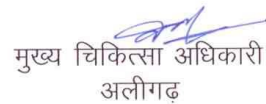 मुख्य चिकित्सा अधिकारी
अलीगढ़